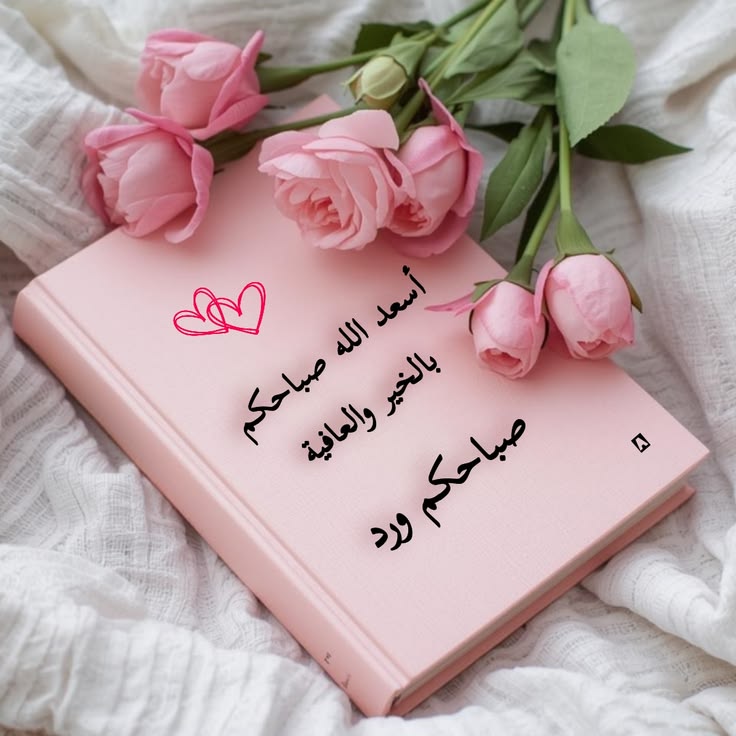 أسعد الله صباحكم
بالخير والعافية
صباحكم ورد